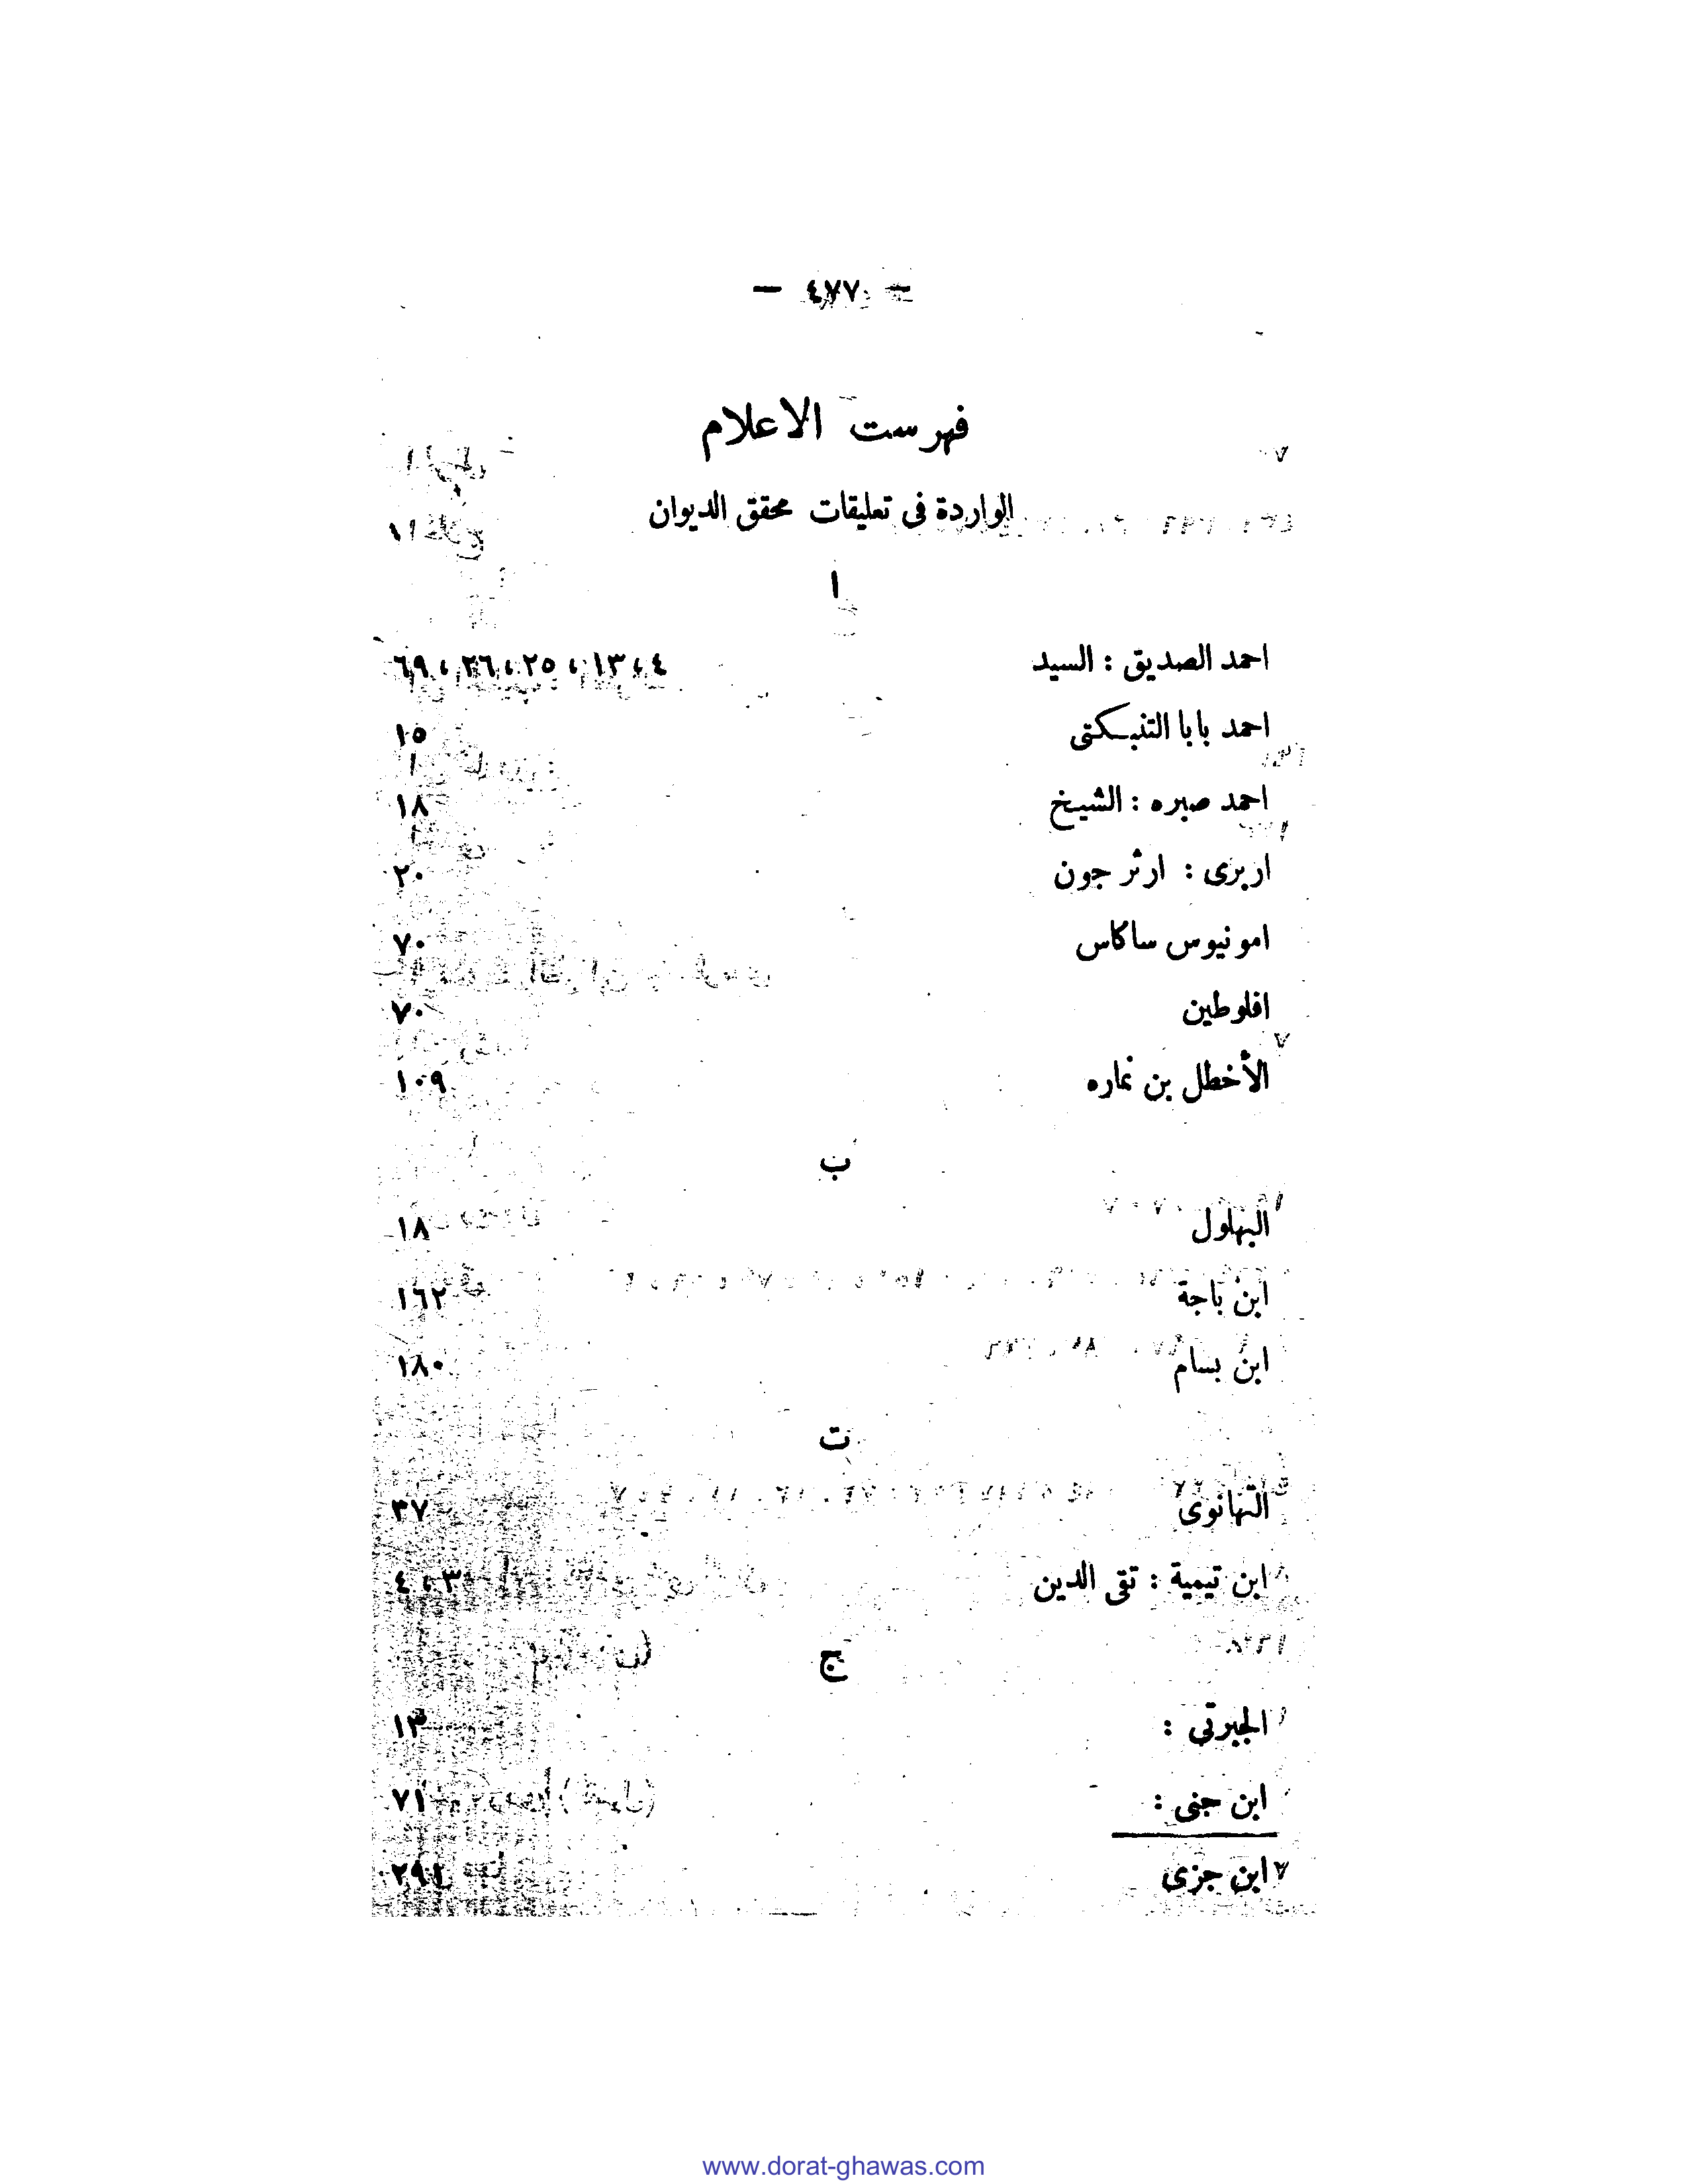 — ٤٧٧ —
فهرست الاعلام
الواردة فى تعليقات محقق الديوان
ا
احمد الصديق : السيد ٤ ، ١٣ ، ٢٥ ، ٢٦ ، ٦٩
احمد بابا التنبكتى ١٥
احمد صبره : الشيخ ١٨
اربرى : ارثر جون ٢٠
امونيوس ساكاس ٧٠
افلوطين ٧٠
الأخطل بن نماره ١٠٩
ب
البهلول ١٨
ابن باجة ١٦٢
ابن بسام ١٨٠
ت
التهانوى ٣٧
ابن تيمية : تقى الدين ٣ ، ٤
ج
الجبرتى : ١٣
ابن جنى : ٧١
ابن جزى
www.dorat-ghawas.com